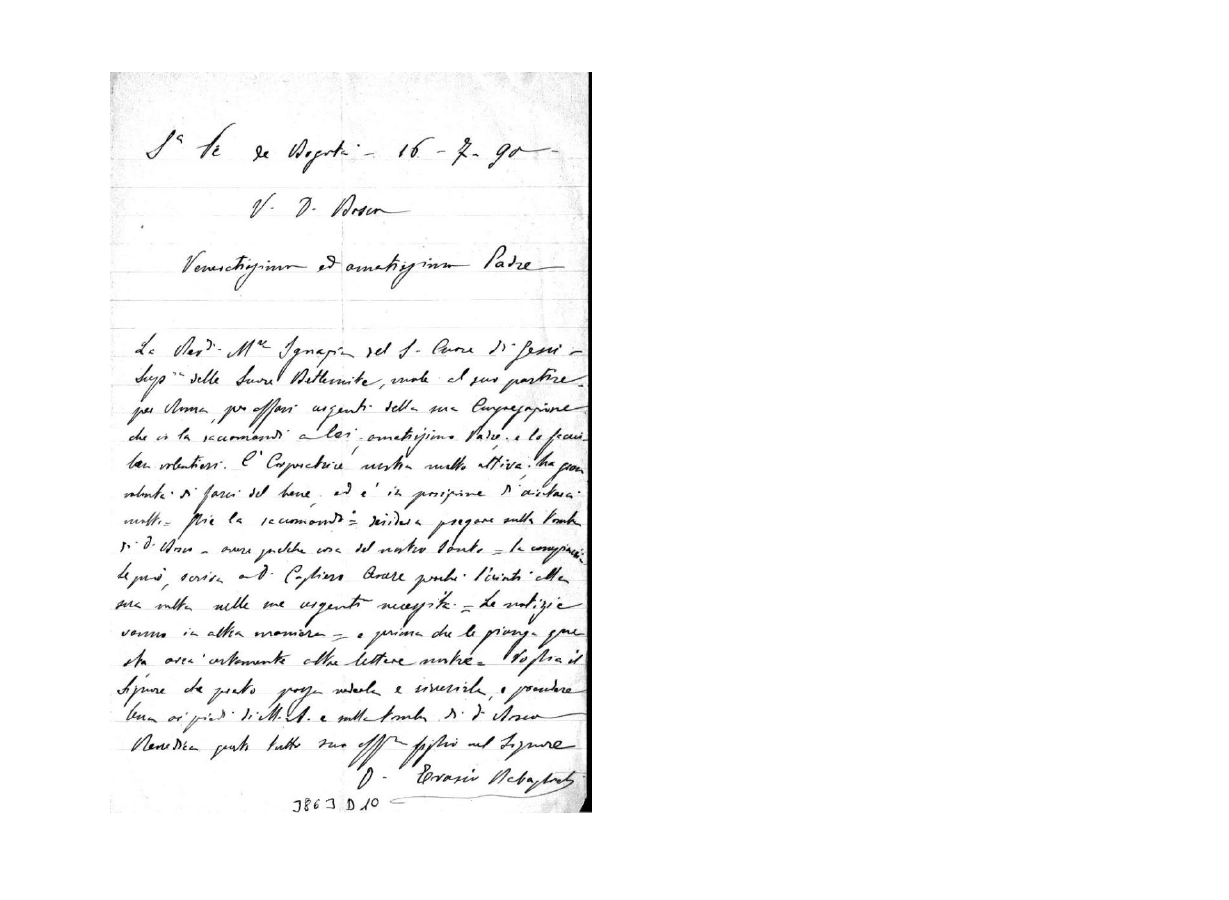 Sª Fè de Bogotà - 16 - 7 - 90 -
V. D. Bosco
Veneratissimo ed amatissimo Padre
La Revdª Mre Ignazia del S. Cuore di Gesù -
Supra delle Suore Betlemite, vuole al suo partire
per Roma, per affari urgenti della sua Congregazione
che io la raccomandi a Lei, amatissimo Padre, e lo faccio
ben volentieri. E' Cooperatrice nostra molto attiva, ha gran
volontà di farci del bene, ed e' in posizione di aiutarci
molto = Gliela raccomando = desidera pregare sulla tomba
di D. Bosco - avere qualche cosa del nostro Santo = la
Se può, scriva a D. Cagliero Cesare perché l'aiuti alla
sua volta nelle sue urgenti necessità = Le notizie
vanno in altra maniera = e prima che le giunga que
sta avrà certamente altre lettere nostre = Voglia il
Signore che presto possa vederla e riverirla, e
ai piedi di M. A. e sulla tomba di D. Bosco
Benedica questo tutto suo affmo figlio nel Signore
D. Evasio Rabagliati
3863 D 10